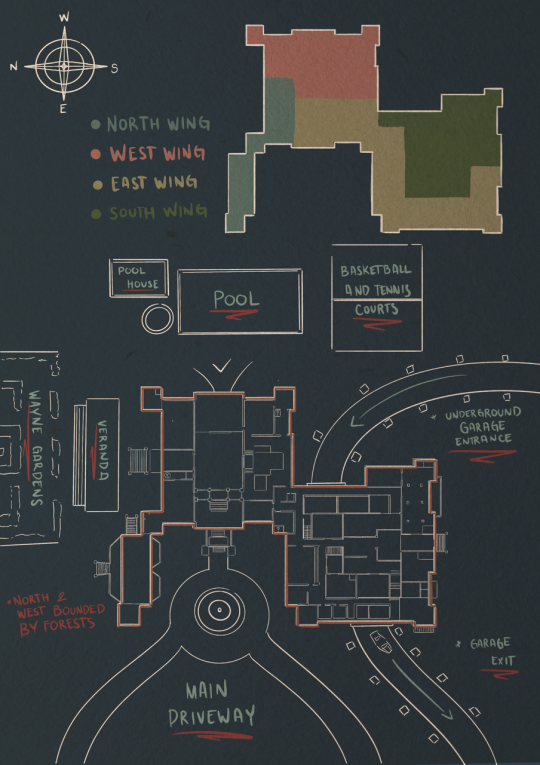 W
N
S
E
NORTH WING
WEST WING
EAST WING
SOUTH WING
POOL
HOUSE
POOL
BASKETBALL
AND TENNIS
COURTS
WAYNE GARDENS
VERANDA
* UNDERGROUND
GARAGE
ENTRANCE
*NORTH &
WEST BOUNDED
BY FORESTS
* GARAGE
EXIT
MAIN
DRIVEWAY